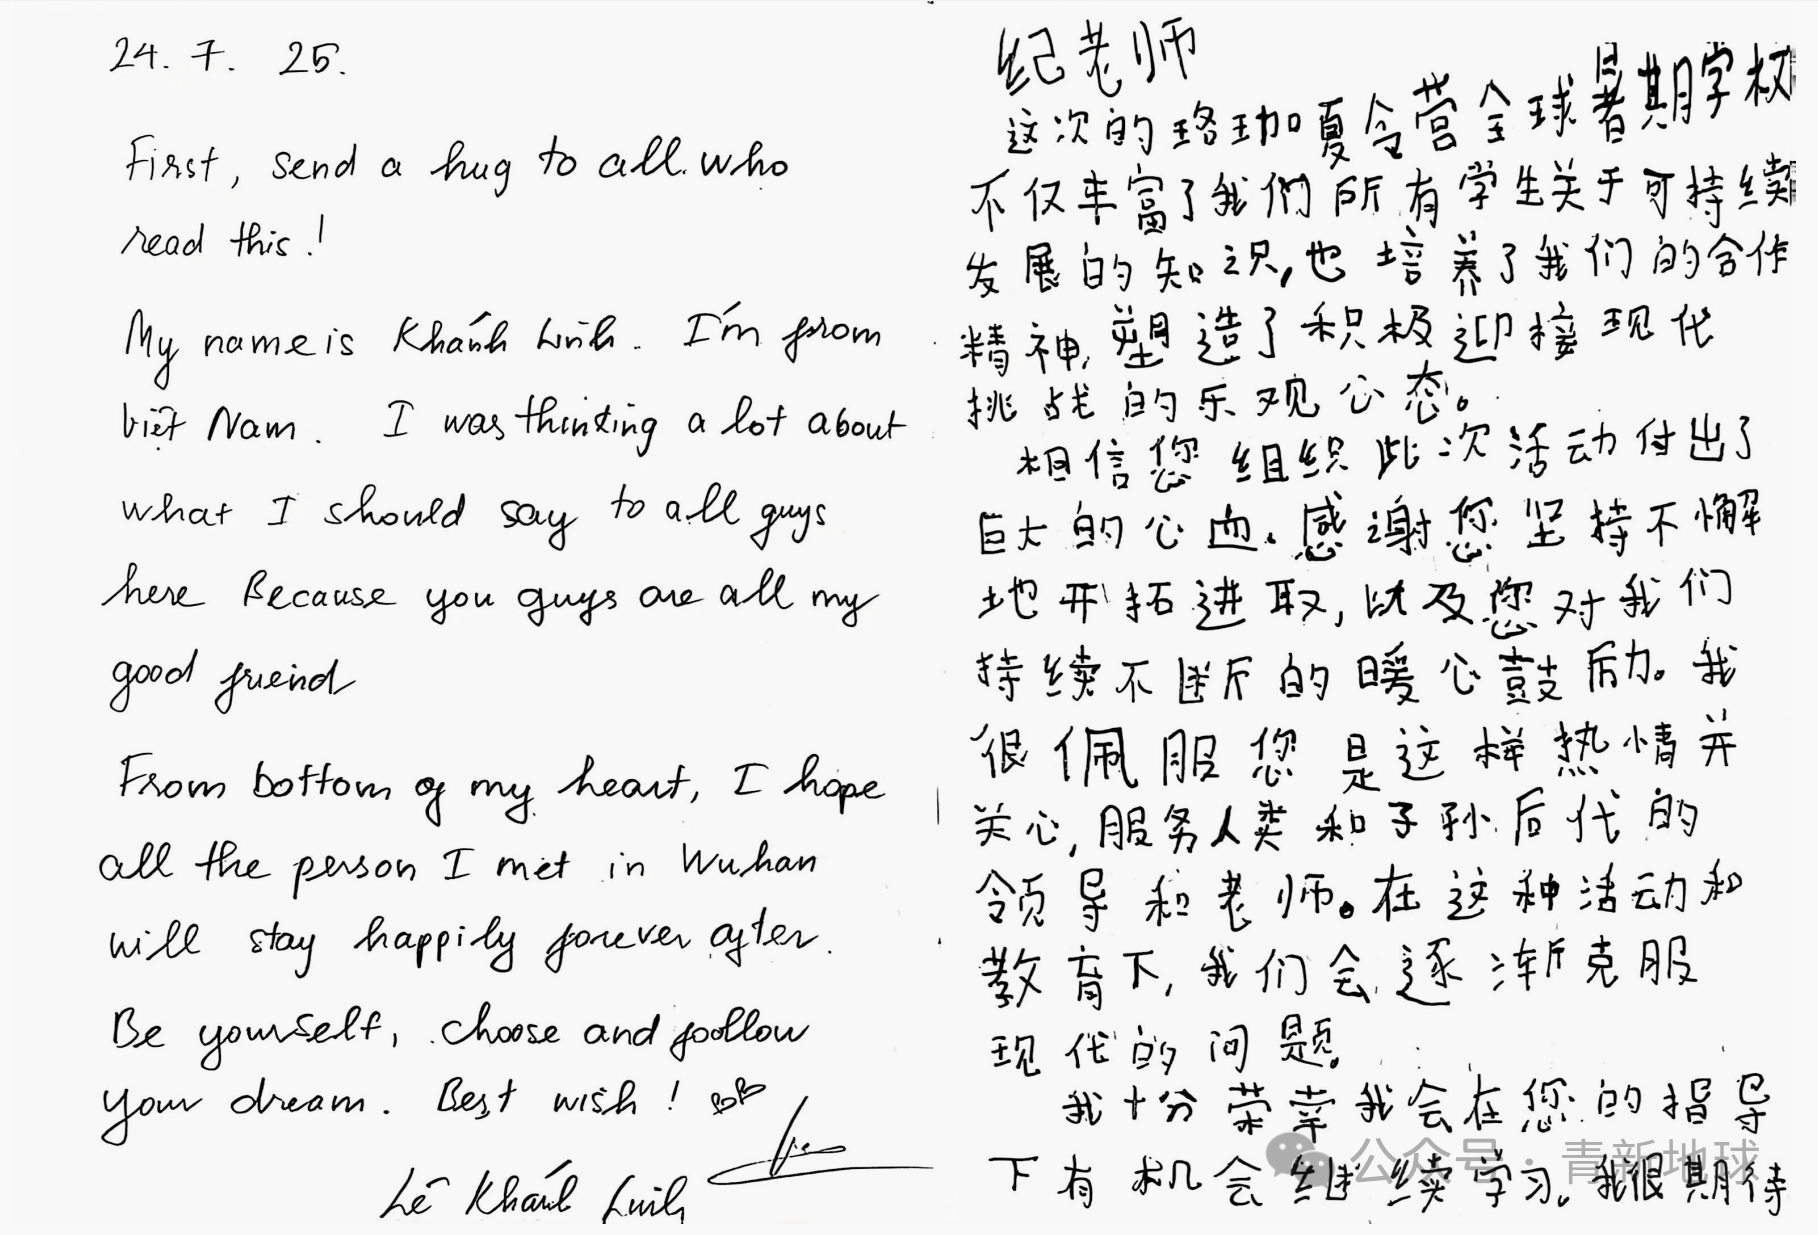 24. 7. 25.
First, send a hug to all who
read this!
My name is Khánh Linh. I'm from
Việt Nam. I was thinking a lot about
what I should say to all guys
here Because you guys are all my
good friend
From bottom of my heart, I hope
all the person I met in Wuhan
will stay happily forever after.
Be yourself, choose and follow
your dream. Best wish!
Lê Khánh Linh
纪老师
这次的珞珈夏令营全球暑期学校
不仅丰富了我们所有学生关于可持续
发展的知识,也培养了我们的合作
精神,塑造了积极迎接现代
挑战的乐观心态。
相信您组织此次活动付出了
巨大的心血。感谢您坚持不懈
地开拓进取,以及您对我们
持续不断的暖心鼓励。我
很佩服您是这样热情并
关心,服务人类和子孙后代的
领导和老师。在这种活动和
教育下,我们会逐渐克服
现代的问题。
我十分荣幸我会在您的指导
下有机会继续学习。我很期待
公众号·青新地球